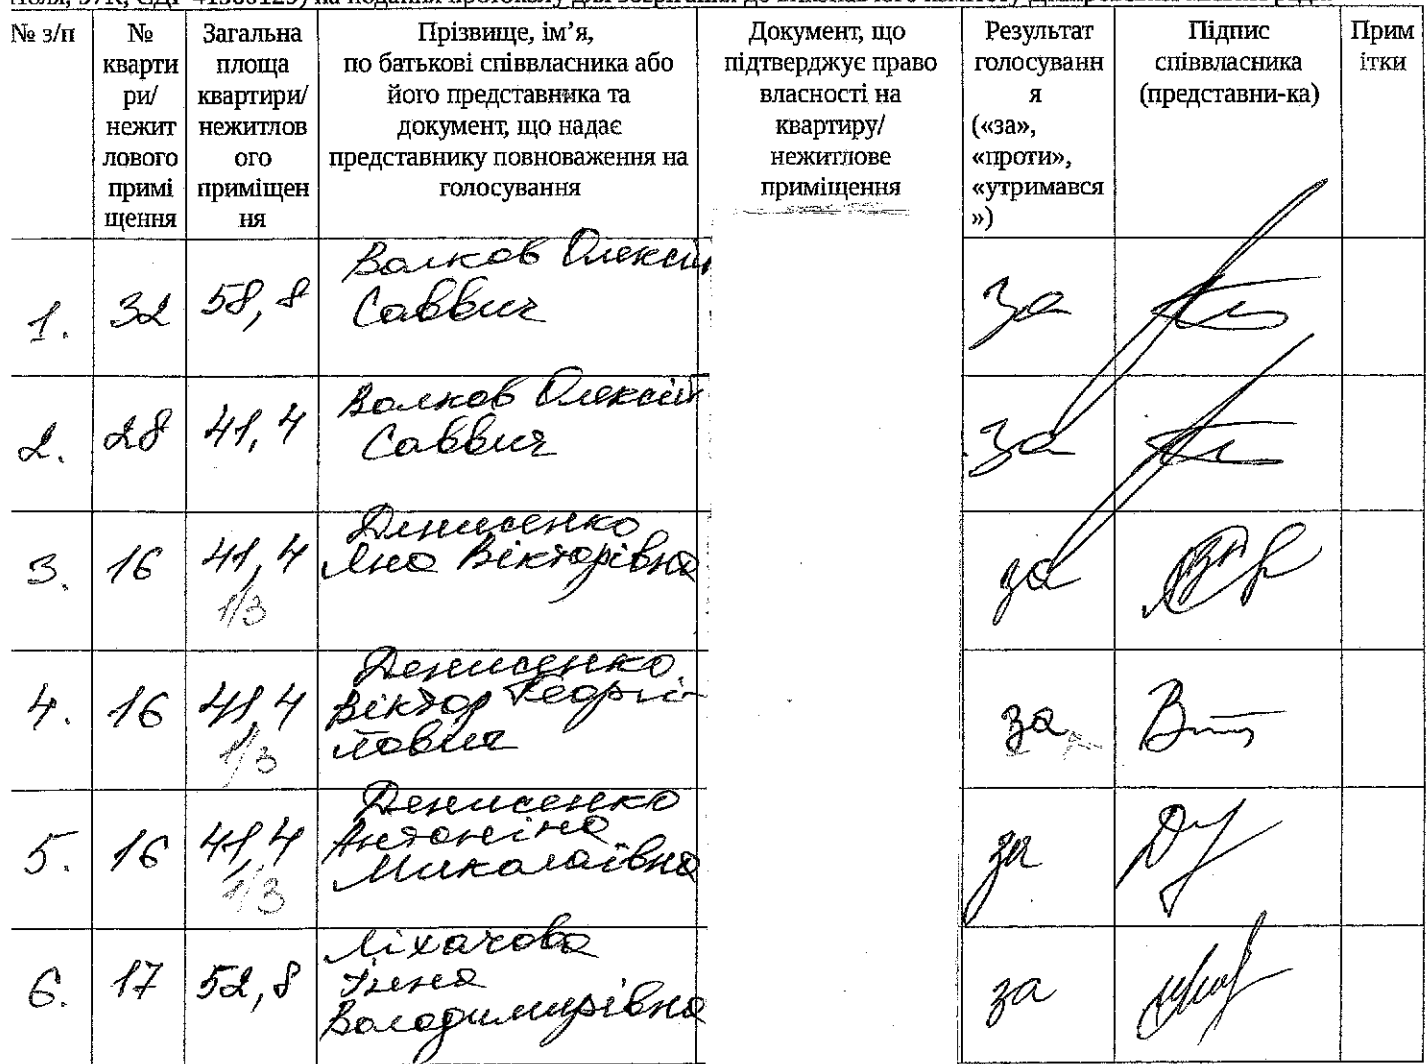 на подання протоколу для зберігання до виконавчого комітету
№ з/п
№
кварти
ри/
нежит
лового
примі
щення
Загальна
площа
квартири/
нежитлов
ого
приміщен
ня
Прізвище, ім’я,
по батькові співвласника або
його представника та
документ, що надає
представнику повноваження на
голосування
Документ, що
підтверджує право
власності на
квартиру/
нежитлове
приміщення
Результат
голосуванн
я
(«за»,
«проти»,
«утримався
»)
Підпис
співвласника
(представни-ка)
Прим
ітки
1.
32
58,8
Волков Олексій
Саввич
за
2.
28
41,4
Волков Олексій
Саввич
за
3.
16
41,4
1/3
Денисенко
Яна Вікторівна
за
4.
16
41,4
1/3
Денисенко
Віктор Георгі-
йович
за
5.
16
41,4
1/3
Денисенко
Антоніна
Миколаївна
за
6.
17
52,8
Ліхачова
Інна
Володимирівна
за